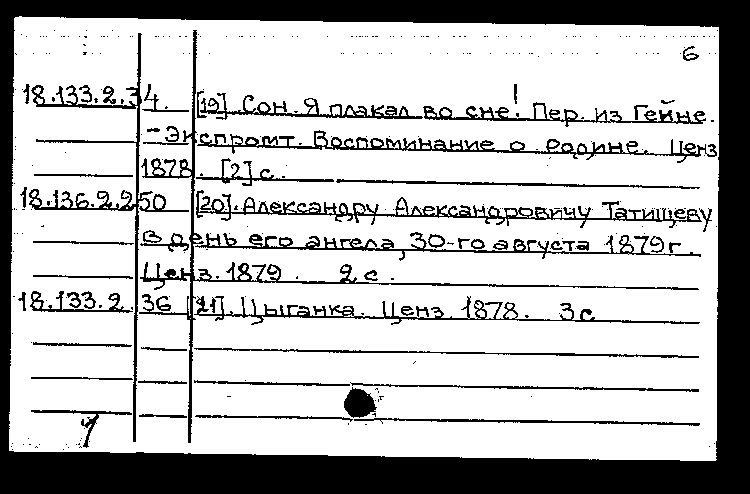 6
18.133.2.34. [19] Сон. Я плакал во сне! Пер. из Гейне.
- Экспромт. Воспоминание о родине. Ценз
1878. [2] с.
18.136.2.250 [20]. Александру Александровичу Татищеву
в день его ангела, 30-го августа 1879 г.
Ценз. 1879. 2 с.
18.133.2.36 [21]. Цыганка. Ценз. 1878. 3 с